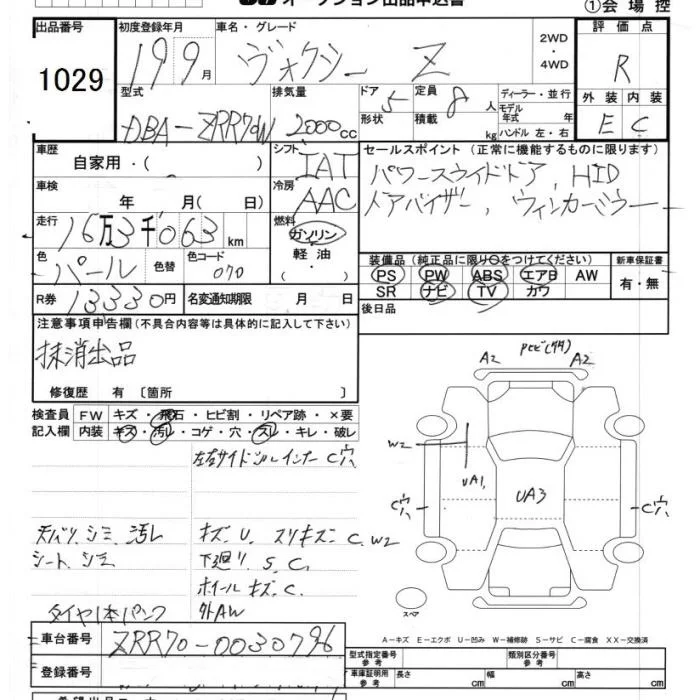 オークション出品申込書
①会場控
出品番号 1029
初度登録年月 19 9月
車名・グレード ヴォクシー Z
2WD・4WD
評価点 R
型式 DBA-ZRR70W
排気量 2000cc
ドア 5 形状
定員 8人 積載 kg
ディーラー・並行
モデル年式 年
ハンドル 左・右
外装 E 内装 C
車歴 自家用・( )
シフト IAT
セールスポイント (正常に機能するものに限ります)
パワースライドドア, HID
車検 年 月( 日)
冷房 AAC
ドアバイザー, ウィンカーミラー
走行 16万3千063km
燃料 ガソリン・軽油・( )
色 パール 色替 色コード 070
装備品 (純正品に限り○をつけてください) 新車保証書
PS PW ABS エアB AW 有・無
R券 13330円 名変通知期限 月 日
SR ナビ TV カワ
後日品
注意事項申告欄(不具合内容等は具体的に記入して下さい)
抹消出品
修復歴 有 〔箇所 〕
検査員記入欄
FW キズ・飛石・ヒビ割・リペア跡・×要
内装 キズ・汚レ・コゲ・穴・スレ・キレ・破レ
左右サイドシルインナーC穴
天バリ シミ 汚レ
キズ. U. スリキズ. C. W2
シート シミ
下廻り S. C.
ホイールキズ. C.
タイヤ1本パンク
外AW
A2
A2
W2
UA1
UA3
C穴
C穴
スペア
A-キズ E-エクボ U-凹み W-補修跡 S-サビ C-腐食 XX-交換済
車台番号 ZRR70-0030796
型式指定番号 参考
類別区分番号 参考
登録番号
車庫証明用 参考 長さ cm 幅 cm 高さ cm